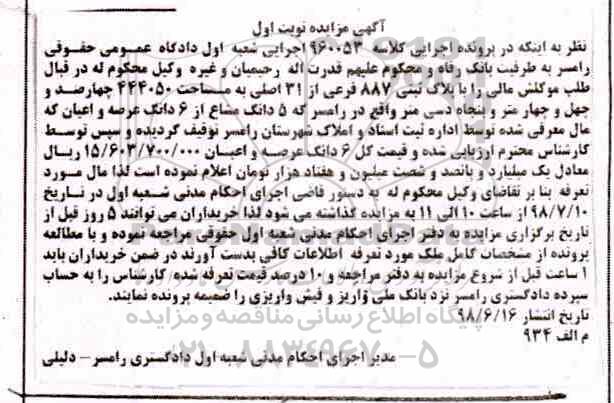 آگهی مزایده نوبت اول
نظر به اینکه در پرونده اجرایی کلاسه ۹۶۰۰۵۳ اجرایی شعبه اول دادگاه عمومی حقوقی
رامسر به طرفیت بانک رفاه و محکوم علیهم قدرت اله رحیمیان و غیره وکیل محکوم له در قبال
طلب موکلش مالی را با پلاک ثبتی ۸۸۷ فرعی از ۳۱ اصلی به مساحت ۴۴۴۰۵۰ چهارصد و
چهل و چهار متر و پنجاه دسی متر واقع در رامسر که ۵ دانگ مشاع از ۶ دانگ عرصه و اعیان که
مال معرفی شده توسط اداره ثبت اسناد و املاک شهرستان رامسر توقیف گردیده و سپس توسط
کارشناس محترم ارزیابی شده و قیمت کل ۶ دانگ عرصه و اعیان ۱۵/۶۰۳/۷۰۰/۰۰۰ ریال
معادل یک میلیارد و پانصد و شصت میلیون و هفتاد هزار تومان اعلام نموده است لذا مال مورد
تعرفه بنا بر تقاضای وکیل محکوم له به دستور قاضی اجرای احکام مدنی شعبه اول در تاریخ
۹۸/۷/۱۰ از ساعت ۱۰ الی ۱۱ به مزایده گذاشته می شود لذا خریداران می توانند ۵ روز قبل از
تاریخ برگزاری مزایده به دفتر اجرای احکام مدنی شعبه اول حقوقی مراجعه نموده و با مطالعه
پرونده از مشخصات کامل ملک مورد تعرفه اطلاعات کافی بدست آورند در ضمن خریداران باید
۱ ساعت قبل از شروع مزایده به دفتر مراجعه و ۱۰ درصد قیمت تعرفه شده کارشناس را به حساب
سپرده دادگستری رامسر نزد بانک ملی واریز و فیش واریزی را ضمیمه پرونده نمایند.
تاریخ انتشار ۹۸/۶/۱۶
م الف ۹۳۴
مدیر اجرای احکام مدنی شعبه اول دادگستری رامسر – دلیلی
پایگاه اطلاع رسانی مناقصه و مزایده
۰۲۱-۸۸۳۴۹۶۷۰-۵